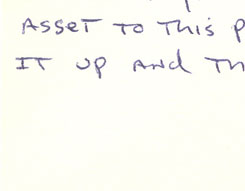 ASSET TO THIS P
IT UP AND TH